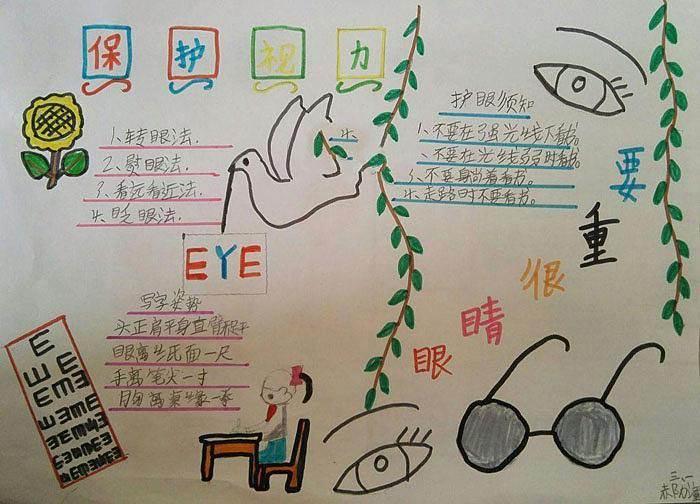 保护视力
1、转眼法.
2、熨眼法.
3、看远看近法.
4、眨眼法.
护眼须知
1、不要在强光线下看书。
、不要在光线弱时看书。
3、不要躺着看书。
4、走路时不要看书。
EYE
写字姿势
头正肩平身直臂
眼离纸面一尺
手离笔尖一寸
胸离桌缘一拳
眼睛很重要
E
E
三、一